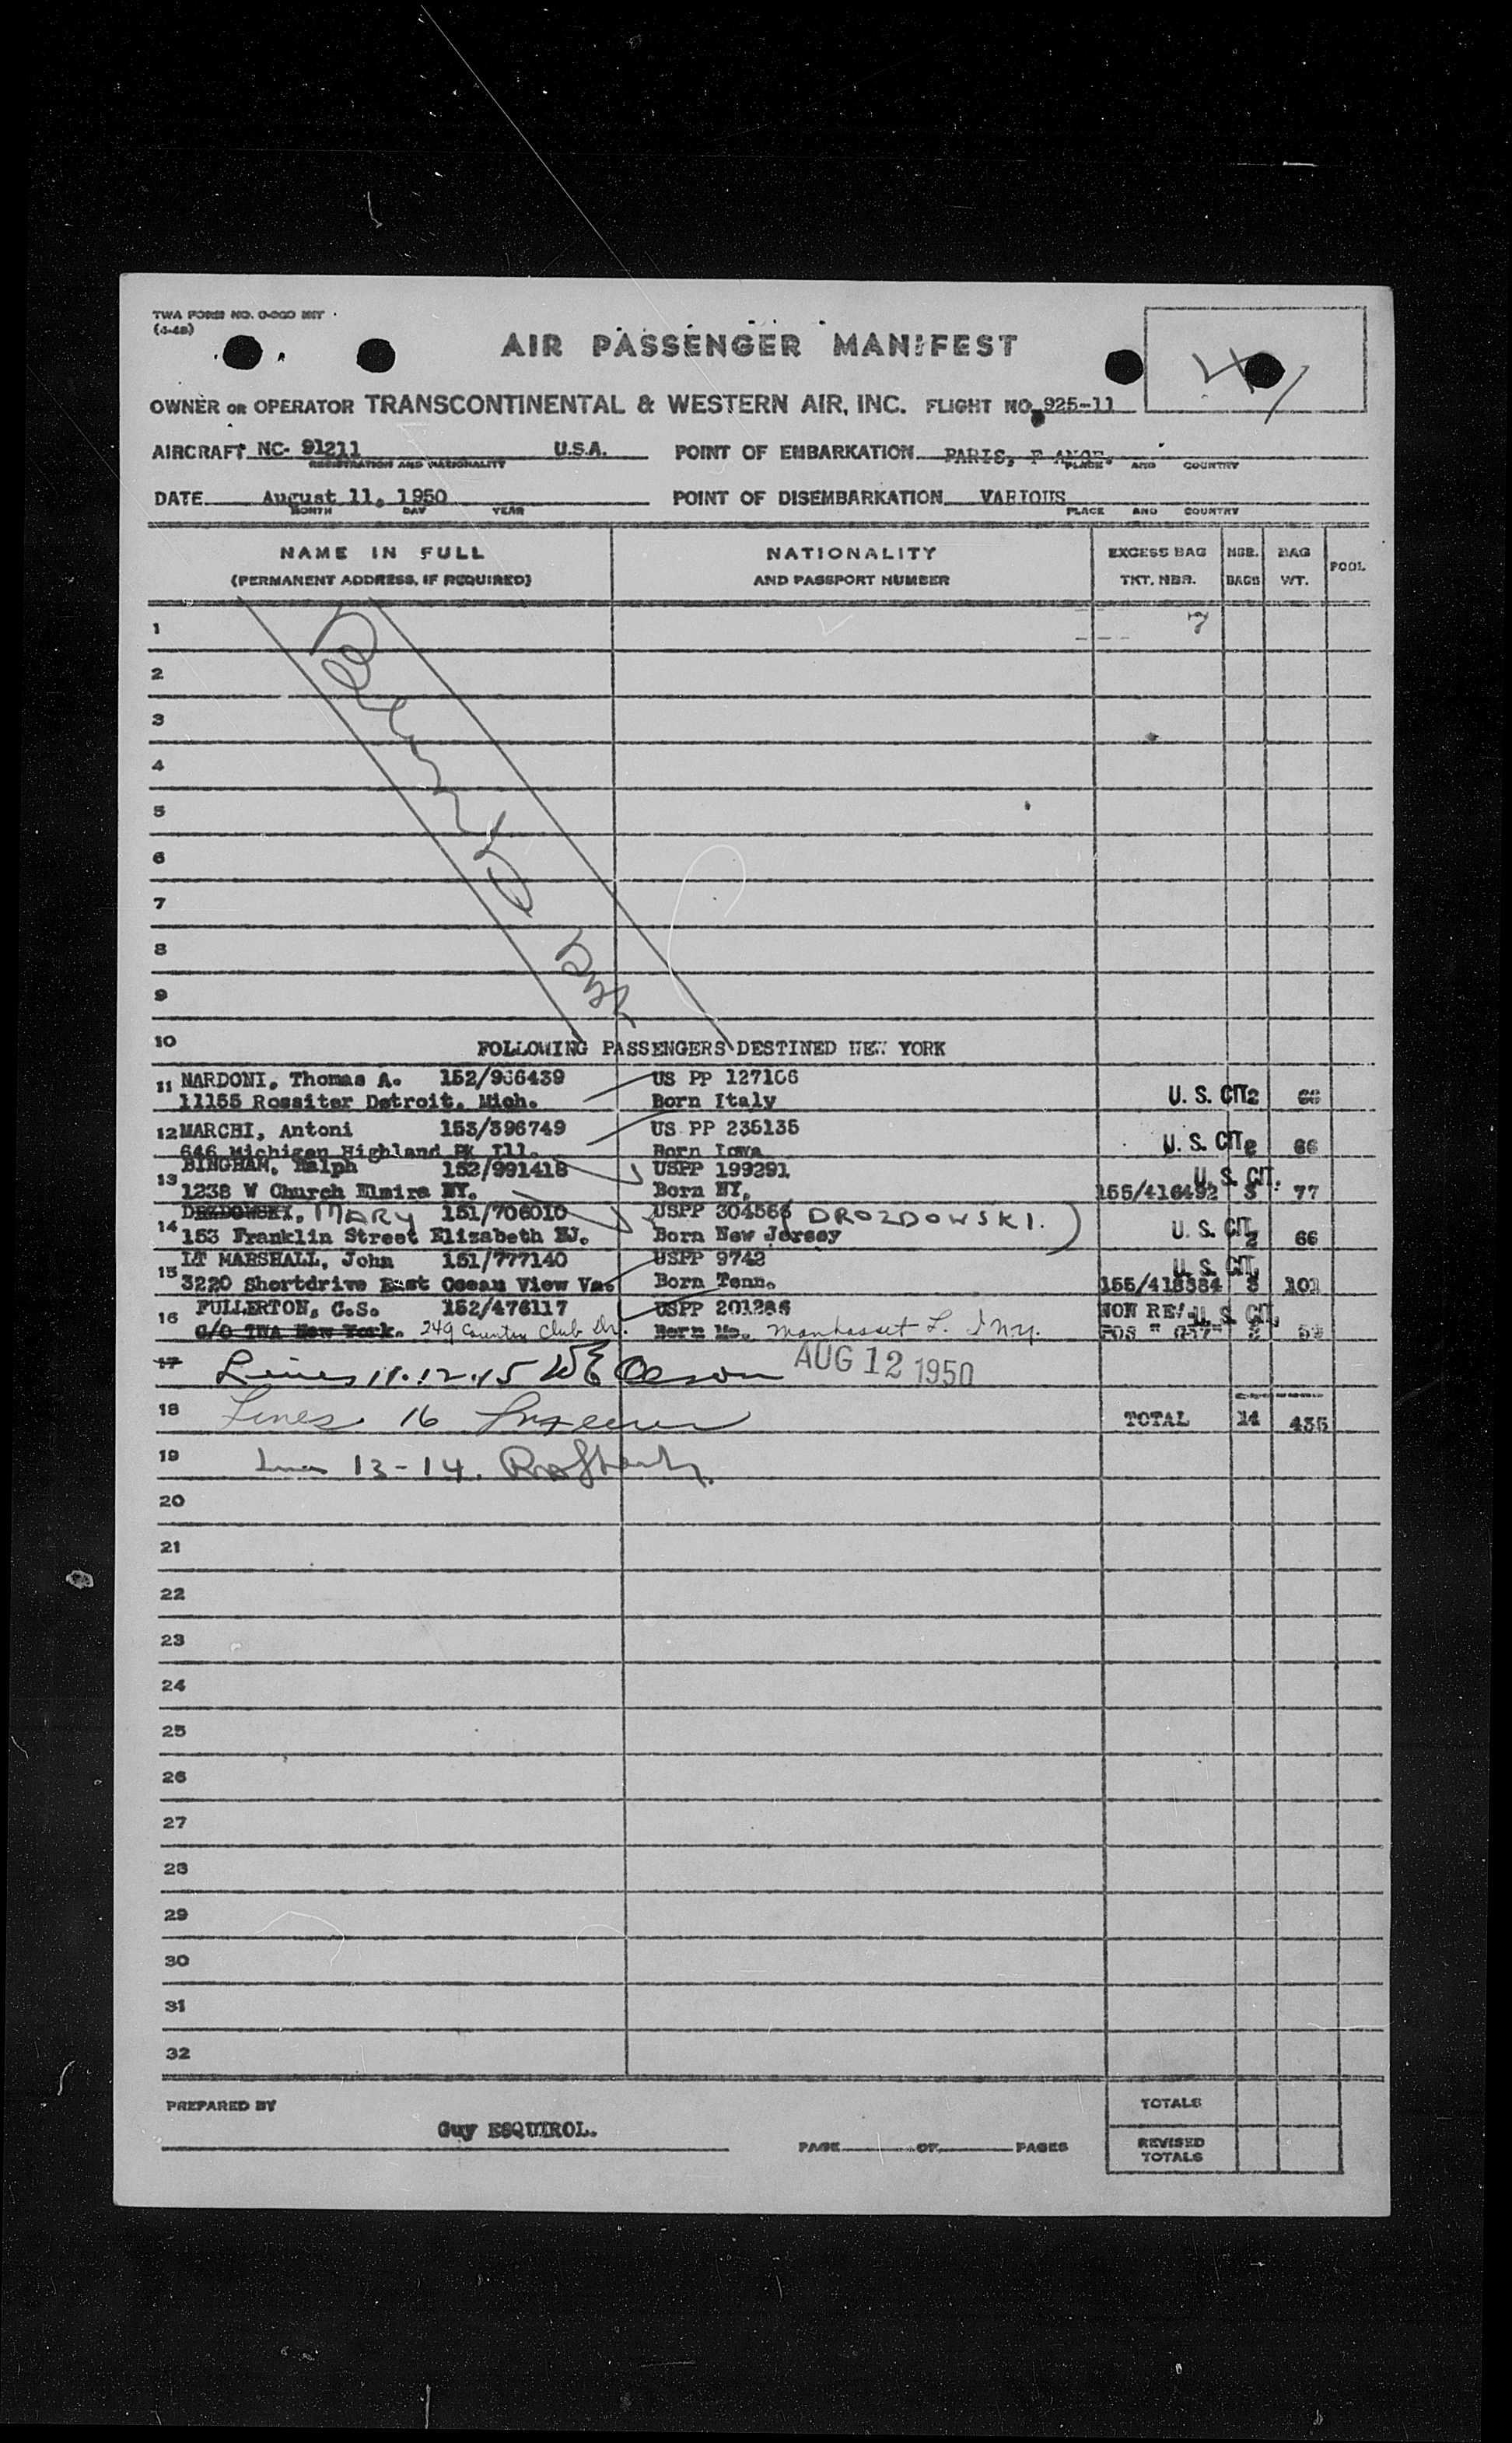 (4-48)
AIR PASSENGER MANIFEST
OWNER OR OPERATOR TRANSCONTINENTAL & WESTERN AIR, INC. FLIGHT NO. 925-11
AIRCRAFT NC- 91211 U.S.A. POINT OF EMBARKATION PARIS,
REGISTRATION AND NATIONALITY PLACE AND COUNTRY
DATE August 11, 1950 POINT OF DISEMBARKATION VARIOUS
MONTH DAY YEAR PLACE AND COUNTRY
NAME IN FULL NATIONALITY EXCESS BAG NBR. BAG POOL
(PERMANENT ADDRESS, IF REQUIRED) AND PASSPORT NUMBER TKT. NBR. BAGS WT.
1
2
3
4
5
6
7
8
9
10 FOLLOWING PASSENGERS DESTINED NEW YORK
11 NARDONI, Thomas A. 152/966439 US PP 127106
11155 Rossiter Detroit. Mich. Born Italy U. S. CIT 2 66
12 MARCHI, Antoni 153/396749 US PP 235135
646 Michigan Highland PK Ill. Born Iowa U. S. CIT 66
13 BINGHAM, Ralph 152/991418 USPP 199291 U. S. CIT.
1238 W Church Elmira NY. Born NY, 155/416492 3 77
14 MARY 151/706010 USPP 304566 ( DROZDOWSKI. )
153 Franklin Street Elizabeth NJ. Born New Jersey U. S. CIT 2 66
15 LT MARSHALL, John 151/777140 USPP 9742 U. S. CIT.
3220 Shortdrive East Ocean View Va. Born Tenn. 155/418384 3 101
16 FULLERTON, C.S. 152/476117 USPP 201286 NON RE U. S. CIT.
C/O TWA New York. 249 Country Club Dr. Born Mo. Manhasset L. I N.Y. POS
17 Lines 11.12.15 WE Olson AUG 12 1950
18 Lines 16 TOTAL 14 435
19 13-14.
20
21
22
23
24
25
26
27
28
29
30
31
32
PREPARED BY TOTALS
Guy ESQUIROL.
PAGE OF PAGES REVISED
TOTALS